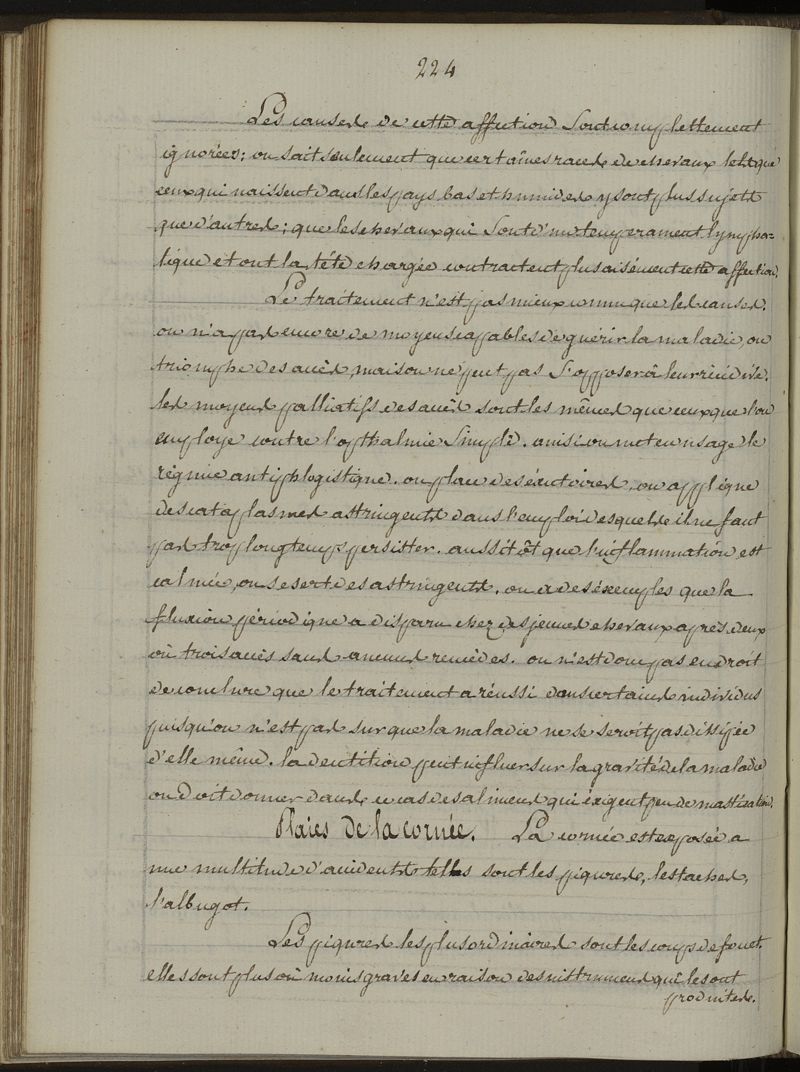 224
Les causes de cette affection Sont complettement
ignorées; on sait seulement que certaînes races de chevaux tels que
ceux qui naissent dans les pays bas et humides y sont plus sujets
que d'autres; que les chevaux qui Sont d'un temperament lympha-
tique et ont la tête chargée contractent plus aisément cette affection.
Le traitement n'est pas mieux connu que les causes.
on n'a pas encore de moyens capables de guérir la maladie, on
triomphe des accès, mais on ne peut pas S'opposer à leur récidive.
les moyens palliatifs des accès sont les mêmes que ceux que l'on
employe contre l'opthalmie Simple. ainsi on met en usage le
régime antiphlogistique. on place des éxutoires, on applique
des cataplasmes astringents dans l'emploi desquels il ne faut
pas trop longtemps persister. aussitôt que l'inflammation est
calmée, on se sert des astringents. on a des éxemples que la
fluxion périodique a disparu chez des jeunes chevaux après deux
où trois accès sans aucuns remèdes. on n'est donc pas en droit
de conclure que le traitement a réussi dans certains individus
puisqu'on n'est pas sur que la maladie ne se seroit pas dissipée
d'elle même. la dentition peut influer sur la gravité de la maladie
on doit donner dans ce cas des alimens qui éxigent peu de mastication.
Plaies de la cornée. La cornée est exposée a
une multitude d'accidents telles sont les piqures, les taches,
l'albugot.
Les piqures les plus ordinaires sont les coups de fouet.
elles sont plus où moins graves en raison des instrumens qui les ont
produites.